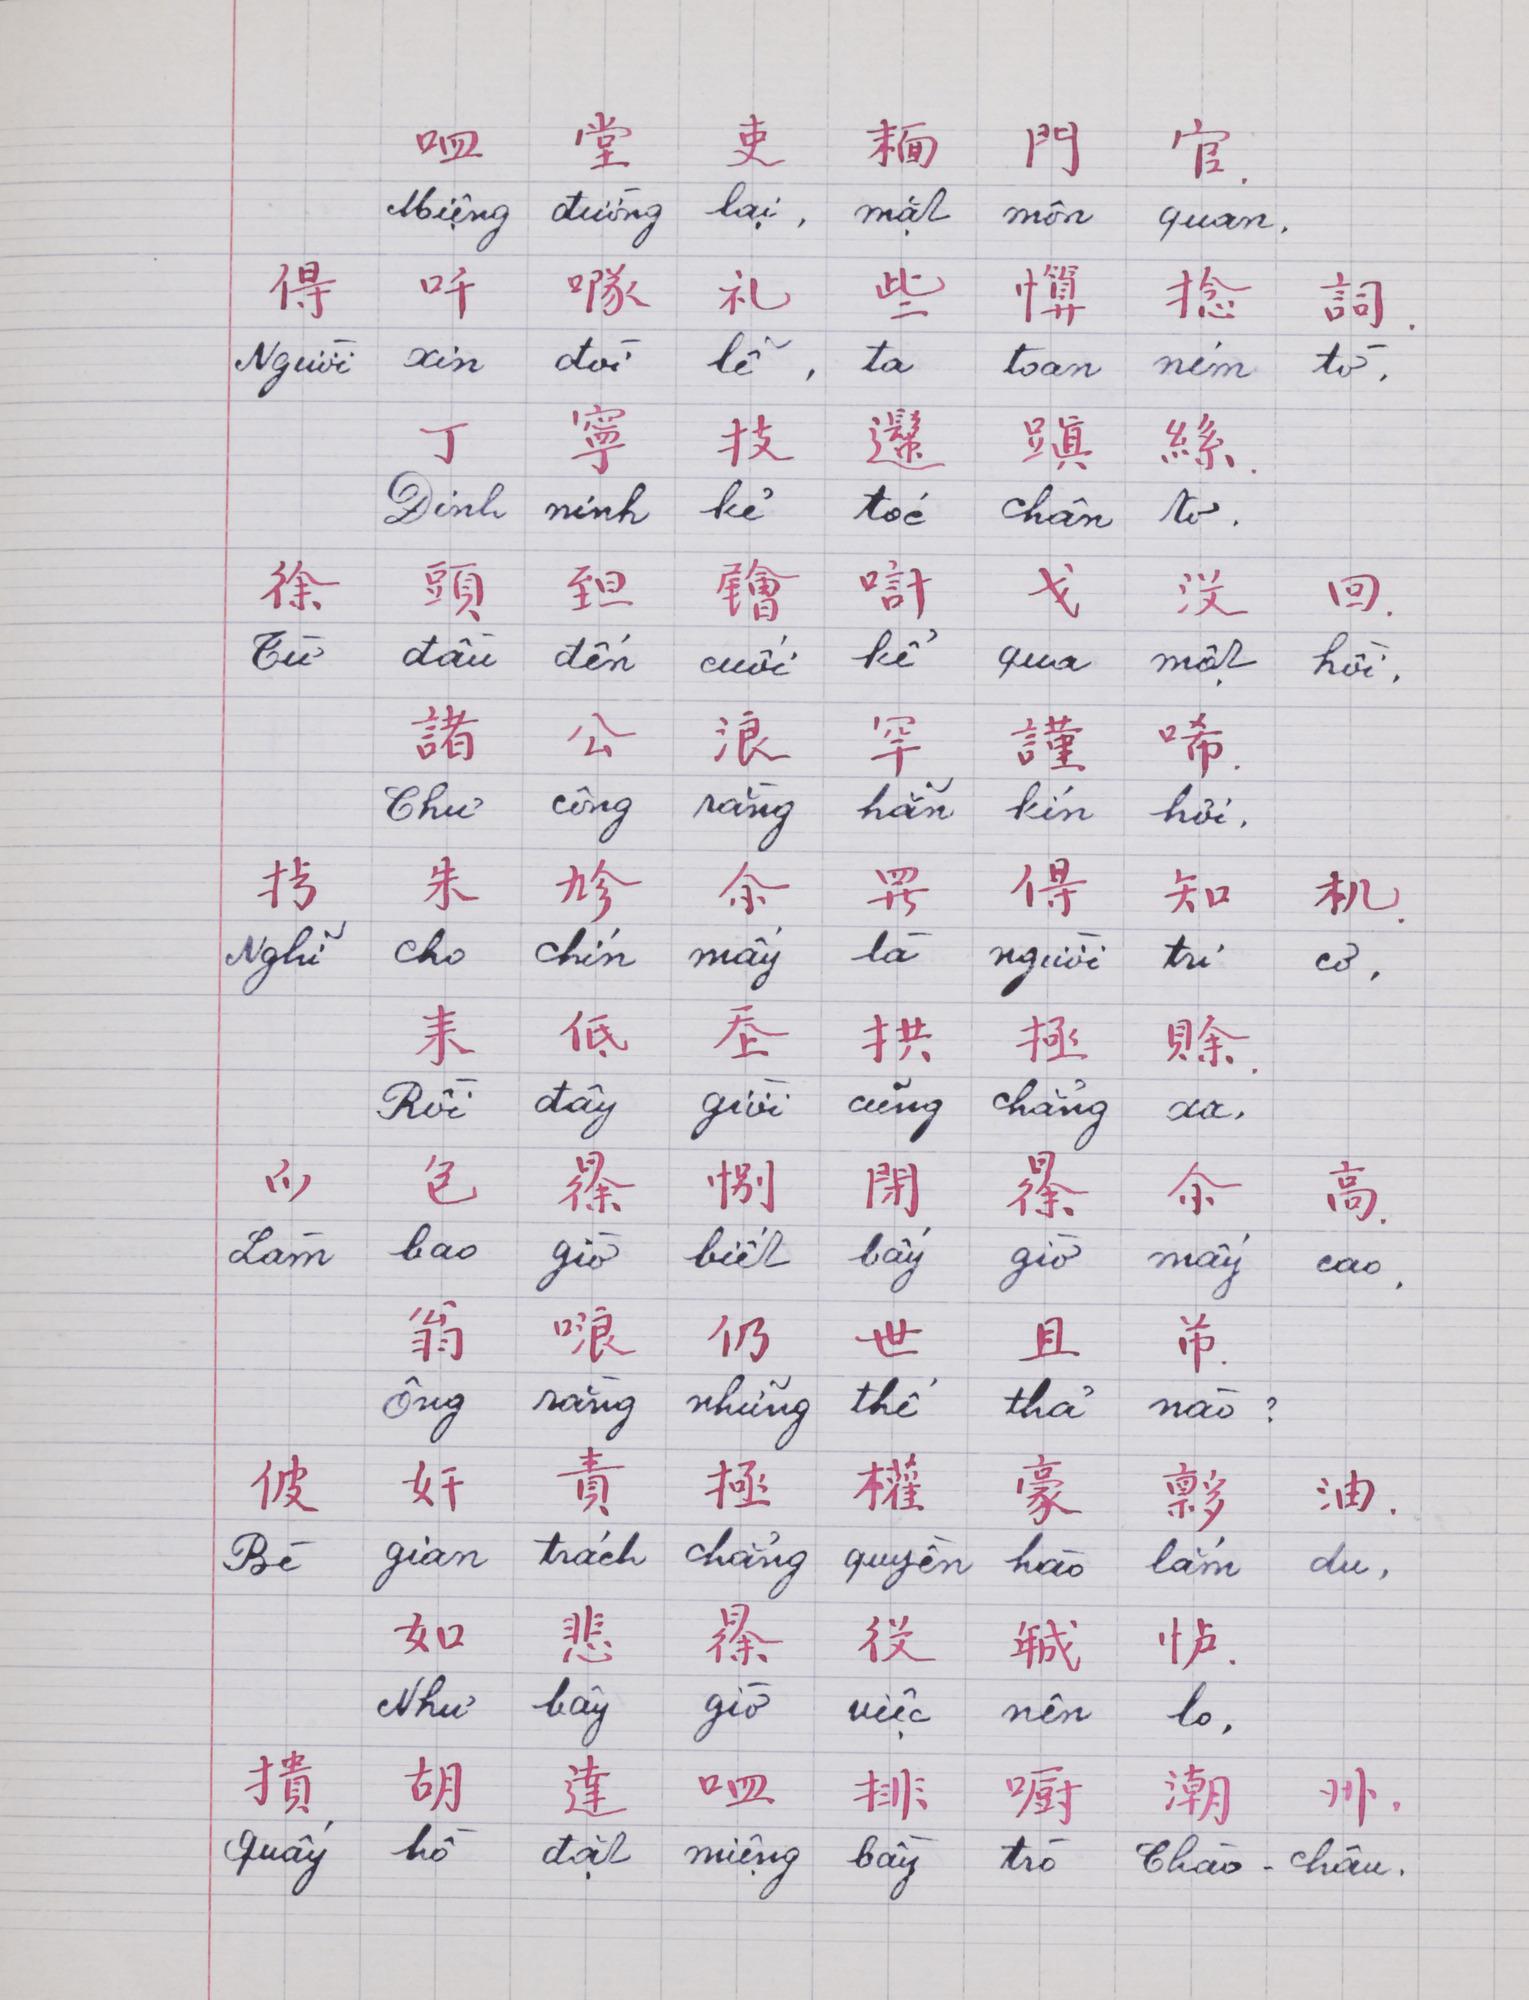 𠰘堂吏𩈘門官.
Miệng đường lại, mặt môn quan.
得吀㗂礼些𢠃捻詞.
Người xin đòi lễ, ta toan ném tờ.
丁寧技𨲧蹎絲.
Đinh ninh kẻ tóc chân tơ.
徐頭𦤾𡳜𠸥戈没回.
Từ đầu đến cuối kể qua một hồi.
諸公浪罕謹唏.
Chư công rằng hẳn kín hơi.
𢪀朱𠃩氽𱺵得知机.
Nghĩ cho chín mấy là người tri cơ.
耒低𡗶拱極賒.
Rồi đây giời cũng chẳng xa.
𬈋包𣇞別閉𣇞氽高.
Làm bao giờ biết bấy giờ mấy cao.
翁哴仍世且芇.
Ông rằng những thế thả nào?
彼奸責極權豪𡗋油.
Bè gian trách chẳng quyền hào lắm du.
如悲𣇞役𢧚𢗼.
Như bây giờ việc nên lo.
撌胡達𠰘排㕑潮州.
Quấy hồ đặt miệng bầy trò Chào-châu.